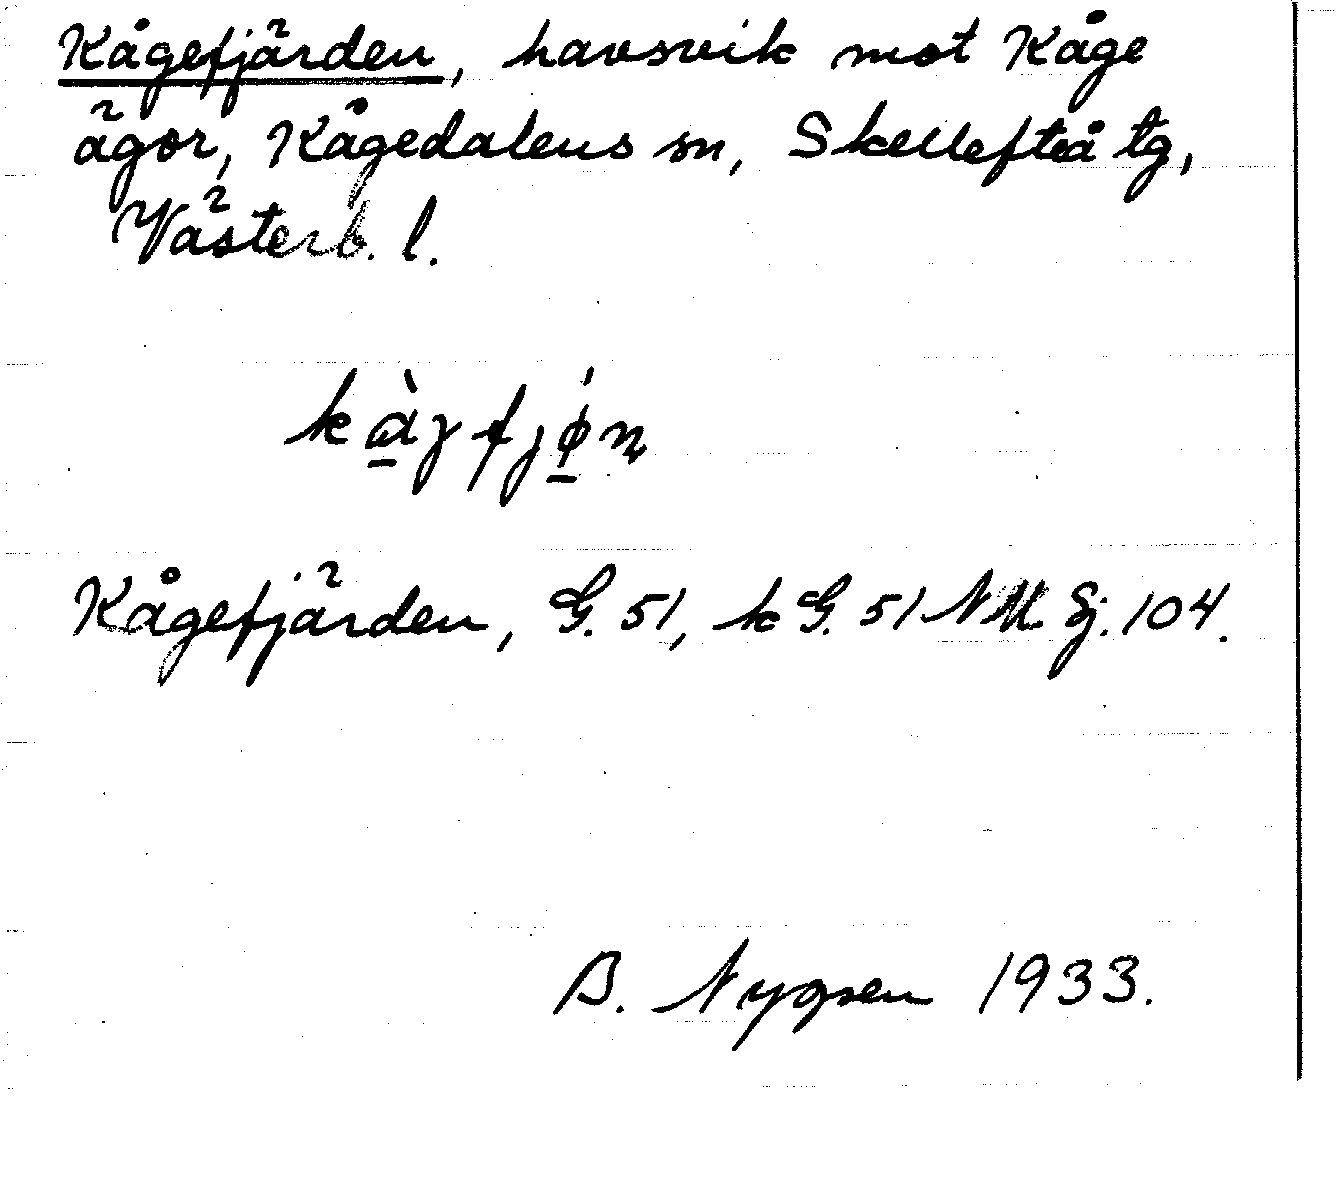 Kågefjärden, havsvik mot Kåge
ägor, Kågedalens sn, Skellefteå tg,
Västerb. l.
Kågefjärden, G. 51, k G. 51 NM Sj. 104.
B. Nygren 1933.